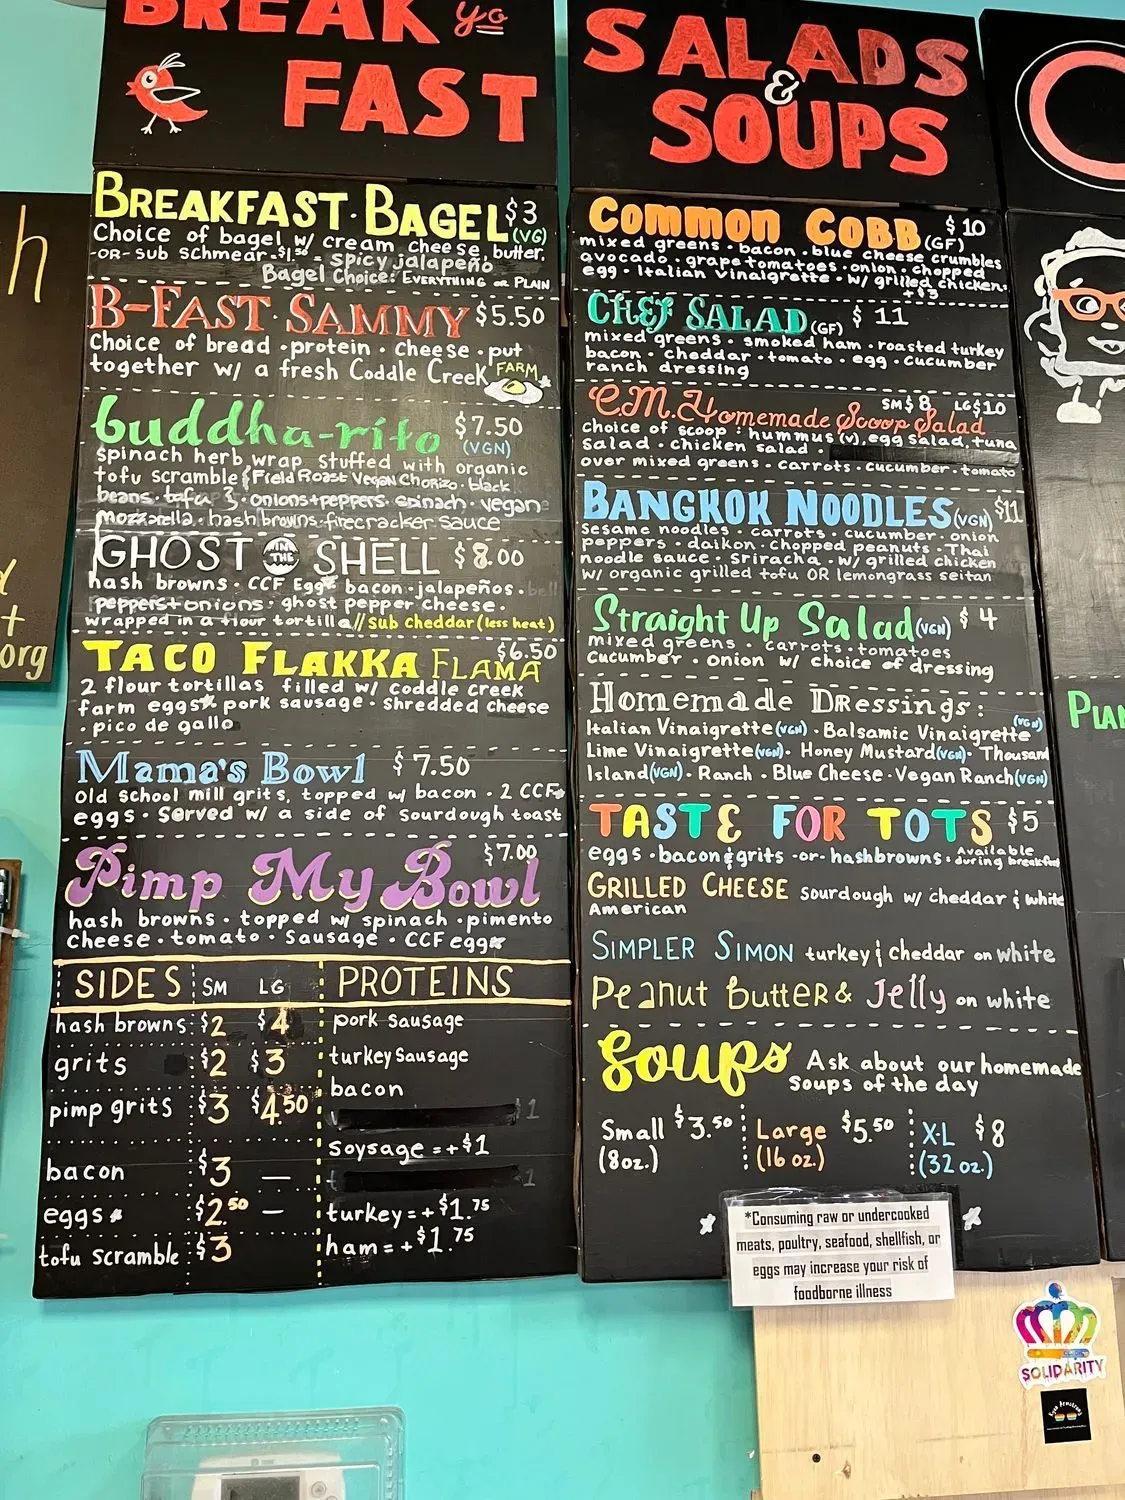 h
t
org
BREAK yo
FAST
BREAKFAST·BAGEL $3
(VG)
Choice of bagel w/ cream cheese, butter,
-OR- sub schmear-$1.50 = spicy jalapeño
Bagel Choice: EVERYTHING OR PLAIN
B-FAST·SAMMY $5.50
Choice of bread · protein · cheese · put
together w/ a fresh Coddle Creek FARM
buddha-rito $7.50
(VGN)
spinach herb wrap stuffed with organic
tofu scramble & Field Roast Vegan Chorizo · black
beans · onions + peppers · spinach · vegan
mozzarella · hash browns · firecracker sauce
GHOST IN THE SHELL $8.00
hash browns · CCF Egg* bacon · jalapeños · bell
peppers + onions · ghost pepper cheese ·
wrapped in a flour tortilla // Sub cheddar (less heat)
TACO FLAKKA FLAMA $6.50
2 flour tortillas filled w/ coddle creek
farm eggs* pork sausage · shredded cheese
· pico de gallo
Mama's Bowl $7.50
old school mill grits, topped w/ bacon · 2 CCF*
eggs · served w/ a side of sourdough toast
Pimp My Bowl $7.00
hash browns · topped w/ spinach · pimento
cheese · tomato · sausage · CCF egg*
SIDES SM LG
hash browns $2 $4
grits $2 $3
pimp grits $3 $4.50
bacon $3 —
eggs* $2.50 —
tofu scramble $3
PROTEINS
pork sausage
turkey sausage
bacon
$1
soysage = +$1
1
turkey = +$1.75
ham = +$1.75
SALADS
&
SOUPS
Common COBB (GF) $10
mixed greens · bacon · blue cheese crumbles
avocado · grape tomatoes · onion · chopped
egg · Italian Vinaigrette · w/ grilled chicken:
+$3
CHEF SALAD (GF) $11
mixed greens · smoked ham · roasted turkey
bacon · cheddar · tomato · egg · cucumber
ranch dressing
C.M. Homemade Scoop Salad SM $8 LG $10
choice of scoop: hummus (v), egg salad, tuna
salad · chicken salad ·
over mixed greens · carrots · cucumber · tomato
BANGKOK NOODLES (VGN) $11
sesame noodles · carrots · cucumber · onion
peppers · daikon · chopped peanuts · Thai
noodle sauce · sriracha · w/ grilled chicken
w/ organic grilled tofu OR lemongrass seitan
Straight Up Salad (VGN) $4
mixed greens · carrots · tomatoes
cucumber · onion w/ choice of dressing
Homemade Dressings:
Italian Vinaigrette (VGN) · Balsamic Vinaigrette (VGN)
Lime Vinaigrette (VGN) · Honey Mustard (VGN) · Thousand
Island (VGN) · Ranch · Blue Cheese · Vegan Ranch (VGN)
TASTE FOR TOTS $5
eggs · bacon & grits -or- hashbrowns · Available during breakfast
GRILLED CHEESE sourdough w/ cheddar & white
American
SIMPLER SIMON turkey & cheddar on white
Peanut Butter & Jelly on white
Soups Ask about our homemade
soups of the day
Small $3.50 Large $5.50 X-L $8
(8oz.) (16 oz.) (32 oz.)
*Consuming raw or undercooked
meats, poultry, seafood, shellfish, or
eggs may increase your risk of
foodborne illness
PLAN
SOLIDARITY